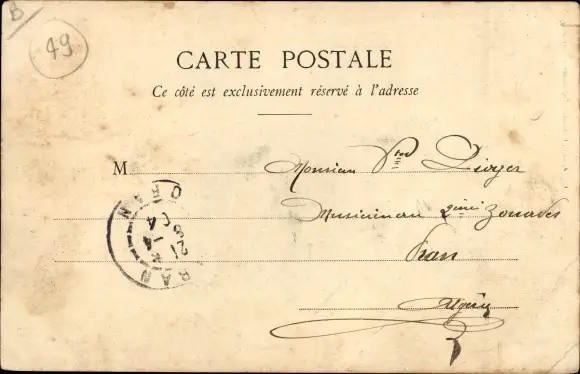 B
49
CARTE POSTALE
Ce côté est exclusivement réservé à l'adresse
M
Monsieur
Musicien au 2ème Zouaves
Oran
Algérie
ORAN
ORAN
21
-4
04